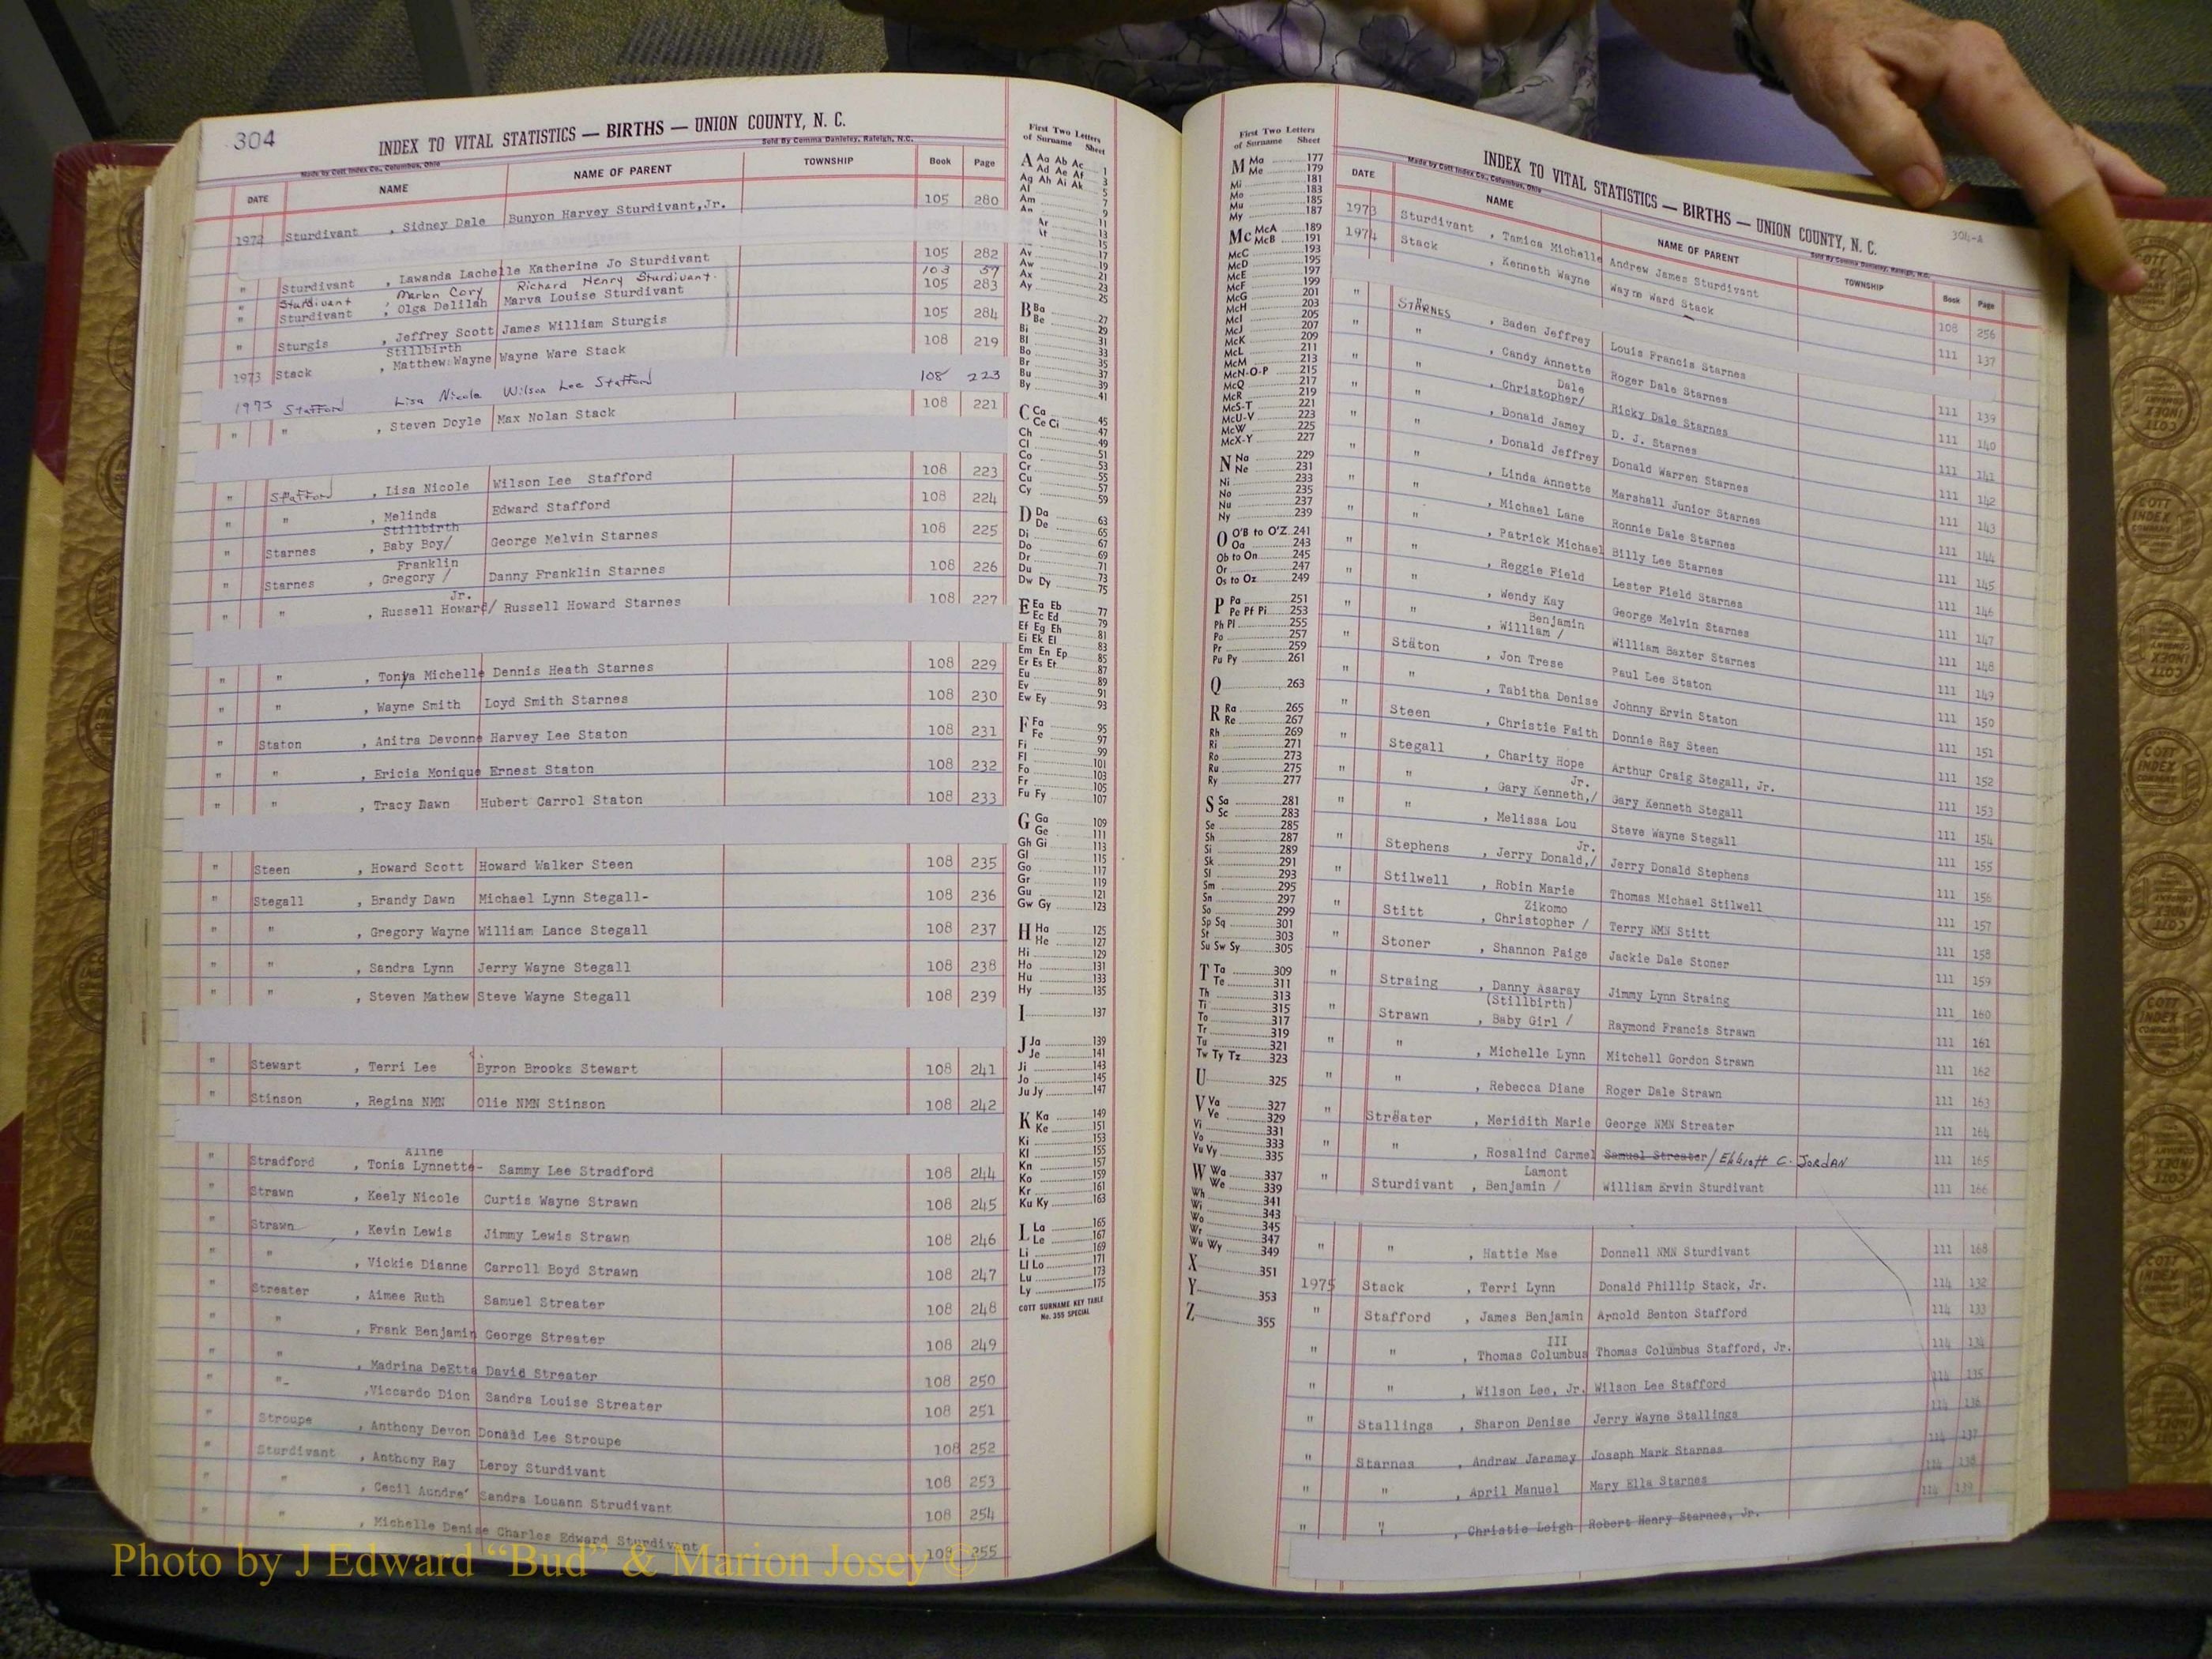 304
INDEX TO VITAL STATISTICS — BIRTHS — UNION COUNTY, N. C.
Made by Cott Index Co., Columbus, Ohio
Sold By Comma Danieley, Raleigh, N.C.
DATE NAME NAME OF PARENT TOWNSHIP Book Page
1972 Sturdivant , Sidney Dale Bunyon Harvey Sturdivant,Jr. 105 280
" Sturdivant , Lawanda Lachelle Katherine Jo Sturdivant 105 282
" Sturdivant Marlon Cory Richard Henry Sturdivant 103 37
" Sturdivant , Olga Delilah Marva Louise Sturdivant 105 283
" Sturgis , Jeffrey Scott James William Sturgis 105 284
Stillbirth
1973 Stack , Matthew Wayne Wayne Ware Stack 108 219
1973 Stafford Lisa Nicole Wilson Lee Stafford 108 223
" " , Steven Doyle Max Nolan Stack 108 221
" Stafford , Lisa Nicole Wilson Lee Stafford 108 223
" " , Melinda Edward Stafford 108 224
Stillbirth
" Starnes , Baby Boy/ George Melvin Starnes 108 225
Franklin
" Starnes , Gregory / Danny Franklin Starnes 108 226
Jr.
" " , Russell Howard/ Russell Howard Starnes 108 227
" " , Tonya Michelle Dennis Heath Starnes 108 229
" " , Wayne Smith Loyd Smith Starnes 108 230
" Staton , Anitra Devonne Harvey Lee Staton 108 231
" " , Ericia Monique Ernest Staton 108 232
" " , Tracy Dawn Hubert Carrol Staton 108 233
" Steen , Howard Scott Howard Walker Steen 108 235
" Stegall , Brandy Dawn Michael Lynn Stegall- 108 236
" " , Gregory Wayne William Lance Stegall 108 237
" " , Sandra Lynn Jerry Wayne Stegall 108 238
" " , Steven Mathew Steve Wayne Stegall 108 239
" Stewart , Terri Lee Byron Brooks Stewart 108 241
" Stinson , Regina NMN Olie NMN Stinson 108 242
Aline
" Stradford , Tonia Lynnette- Sammy Lee Stradford 108 244
" Strawn , Keely Nicole Curtis Wayne Strawn 108 245
" Strawn , Kevin Lewis Jimmy Lewis Strawn 108 246
" " , Vickie Dianne Carroll Boyd Strawn 108 247
" Streater , Aimee Ruth Samuel Streater 108 248
" " , Frank Benjamin George Streater 108 249
" " , Madrina DeEtta David Streater 108 250
" " ,Viccardo Dion Sandra Louise Streater 108 251
" Stroupe , Anthony Devon Donald Lee Stroupe 108 252
" Sturdivant , Anthony Ray Leroy Sturdivant 108 253
" " , Cecil Aondre' Sandra Louann Strudivant 108 254
" " , Michelle Denise Charles Edward Sturdivant 108 255
First Two Letters of Surname Sheet
A Aa Ab Ac 1
Ad Ae Af 3
Ag Ah Ai Ak 5
Al 7
Am 9
An 11
Ar 13
At 15
Av 17
Aw 19
Ax 21
Ay 23
25
B Ba 27
Be 29
Bi 31
Bl 33
Bo 35
Br 37
Bu 39
By 41
C Ca 45
Ce Ci 47
Ch 49
Cl 51
Co 53
Cr 55
Cu 57
Cy 59
D Da 63
De 65
Di 67
Do 69
Dr 71
Du 73
Dw Dy 75
E Ea Eb 77
Ec Ed 79
Ef Eg Eh 81
Ei Ek El 83
Em En Ep 85
Er Es Et 87
Eu 89
Ev 91
Ew Ey 93
F Fa 95
Fe 97
Fi 99
Fl 101
Fo 103
Fr 105
Fu Fy 107
G Ga 109
Ge 111
Gh Gi 113
Gl 115
Go 117
Gr 119
Gu 121
Gw Gy 123
H Ha 125
He 127
Hi 129
Ho 131
Hu 133
Hy 135
I 137
J Ja 139
Je 141
Ji 143
Jo 145
Ju Jy 147
K Ka 149
Ke 151
Ki 153
Kl 155
Kn 157
Ko 159
Kr 161
Ku Ky 163
L La 165
Le 167
Li 169
Ll Lo 171
Lu 173
Ly 175
COTT SURNAME KEY TABLE
No. 355 SPECIAL
First Two Letters of Surname Sheet
M Ma 177
Me 179
Mi 181
Mo 183
Mu 185
My 187
Mc McA 189
McB 191
McC 193
McD 195
McE 197
McF 199
McG 201
McH 203
McI 205
McJ 207
McK 209
McL 211
McM 213
McN-O-P 215
McQ 217
McR 219
McS-T 221
McU-V 223
McW 225
McX-Y 227
N Na 229
Ne 231
Ni 233
No 235
Nu 237
Ny 239
O O'B to O'Z 241
Oa 243
Ob to On 245
Or 247
Os to Oz 249
P Pa 251
Pe Pf Pi 253
Ph Pl 255
Po 257
Pr 259
Pu Py 261
Q 263
R Ra 265
Re 267
Rh 269
Ri 271
Ro 273
Ru 275
Ry 277
S Sa 281
Sc 283
Se 285
Sh 287
Si 289
Sk 291
Sl 293
Sm 295
Sn 297
So 299
Sp Sq 301
St 303
Su Sw Sy 305
T Ta 309
Te 311
Th 313
Ti 315
To 317
Tr 319
Tu 321
Tw Ty Tz 323
U 325
V Va 327
Ve 329
Vi 331
Vo 333
Vu Vy 335
W Wa 337
We 339
Wh 341
Wi 343
Wo 345
Wr 347
Wu Wy 349
X 351
Y 353
Z 355
304-A
INDEX TO VITAL STATISTICS — BIRTHS — UNION COUNTY, N. C.
Made by Cott Index Co., Columbus, Ohio
Sold By Comma Danieley, Raleigh, N.C.
DATE NAME NAME OF PARENT TOWNSHIP Book Page
1973 Sturdivant , Tamica Michelle Andrew James Sturdivant 108 256
1974 Stack , Kenneth Wayne Wayne Ward Stack 111 137
" STARNES , Baden Jeffrey Louis Francis Starnes 111 139
" " , Candy Annette Roger Dale Starnes 111 140
Dale
" " , Christopher/ Ricky Dale Starnes 111 141
" " , Donald Jamey D. J. Starnes 111 142
" " , Donald Jeffrey Donald Warren Starnes 111 143
" " , Linda Annette Marshall Junior Starnes 111 144
" " , Michael Lane Ronnie Dale Starnes 111 145
" " , Patrick Michael Billy Lee Starnes 111 146
" " , Reggie Field Lester Field Starnes 111 147
" " , Wendy Kay George Melvin Starnes 111 148
Benjamin
" " , William / William Baxter Starnes 111 149
" Staton , Jon Trese Paul Lee Staton 111 150
" " , Tabitha Denise Johnny Ervin Staton 111 151
" Steen , Christie Faith Donnie Ray Steen 111 152
" Stegall , Charity Hope Arthur Craig Stegall, Jr. 111 153
Jr.
" " , Gary Kenneth,/ Gary Kenneth Stegall 111 154
" " , Melissa Lou Steve Wayne Stegall 111 155
Jr.
" Stephens , Jerry Donald,/ Jerry Donald Stephens 111 156
" Stilwell , Robin Marie Thomas Michael Stilwell 111 157
Zikomo
" Stitt , Christopher / Terry NMN Stitt 111 158
" Stoner , Shannon Paige Jackie Dale Stoner 111 159
" Straing , Danny Asaray Jimmy Lynn Straing 111 160
(Stillbirth)
" Strawn , Baby Girl / Raymond Francis Strawn 111 161
" " , Michelle Lynn Mitchell Gordon Strawn 111 162
" " , Rebecca Diane Roger Dale Strawn 111 163
" Streater , Meridith Marie George NMN Streater 111 164
" " , Rosalind Carmel Samuel Streater / Elliott C. JORDAN 111 165
Lamont
" Sturdivant , Benjamin / William Ervin Sturdivant 111 166
" " , Hattie Mae Donnell NMN Sturdivant 111 168
1975 Stack , Terri Lynn Donald Phillip Stack, Jr. 114 132
" Stafford , James Benjamin Arnold Benton Stafford 114 133
III
" " , Thomas Columbus Thomas Columbus Stafford, Jr. 114 134
" " , Wilson Lee, Jr. Wilson Lee Stafford 114 135
" Stallings , Sharon Denise Jerry Wayne Stallings 114 136
" Starnes , Andrew Jaremey Joseph Mark Starnes 114 137
" " , April Manuel Mary Ella Starnes 114 138
" " , Christie Leigh Robert Henry Starnes, Jr. 114 139
COTT INDEX COMPANY
Photo by J Edward "Bud" & Marion Josey ©